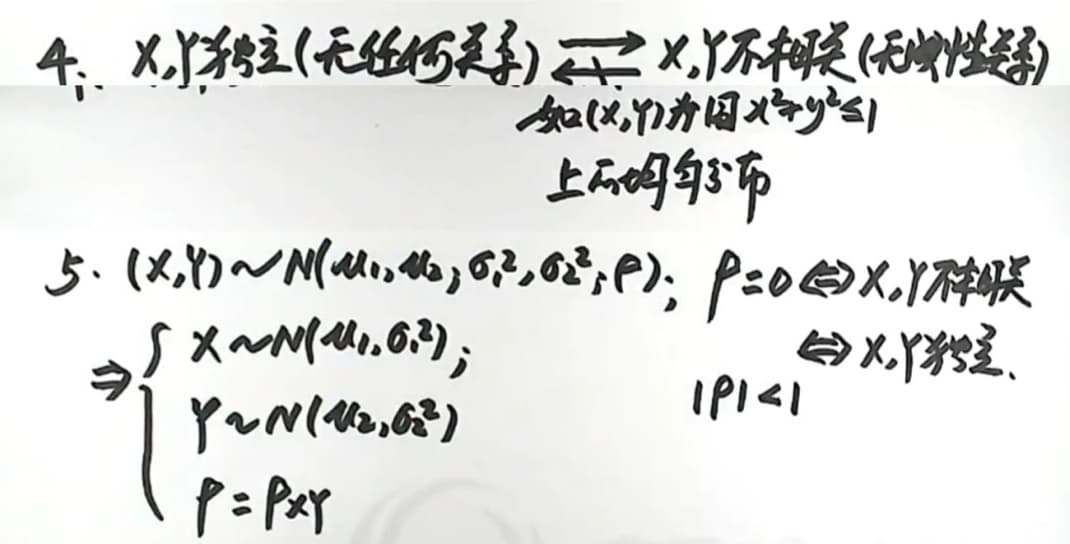 4、X,Y独立(无任何关系) ⇄ X,Y不相关(无线性关系)
如(X,Y)为圆x²+y²≤1
上的均匀分布
5.(X,Y)~N(μ₁,μ₂;σ₁²,σ₂²;ρ); ρ=0⇔X,Y不相关
⇒{ X~N(μ₁,σ₁²); ⇔X,Y独立.
Y~N(μ₂,σ₂²) |ρ|<1
ρ=ρxy